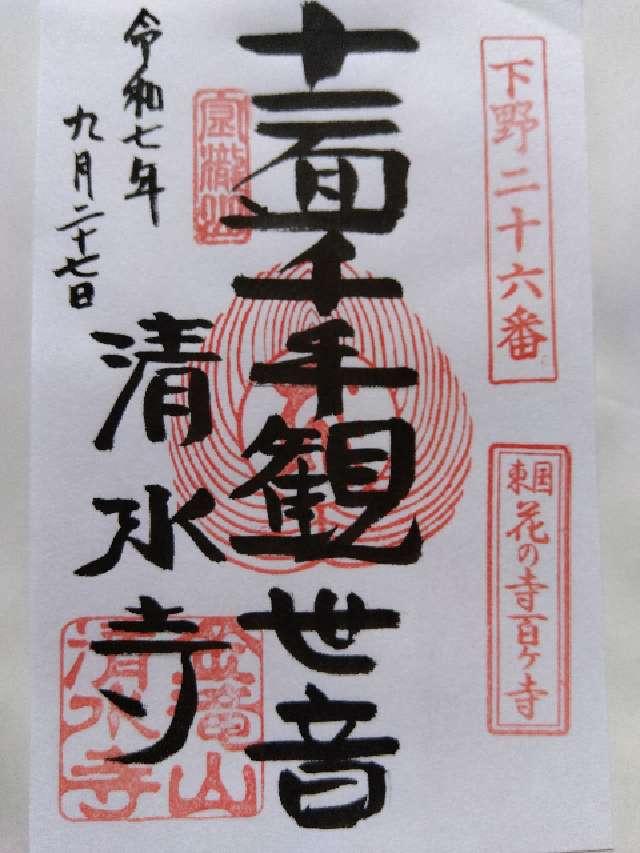 下野二十六番
東国花の寺百ヶ寺
十一面千手観世音
清水寺
令和七年
九月二十七日
金龍山
清水寺